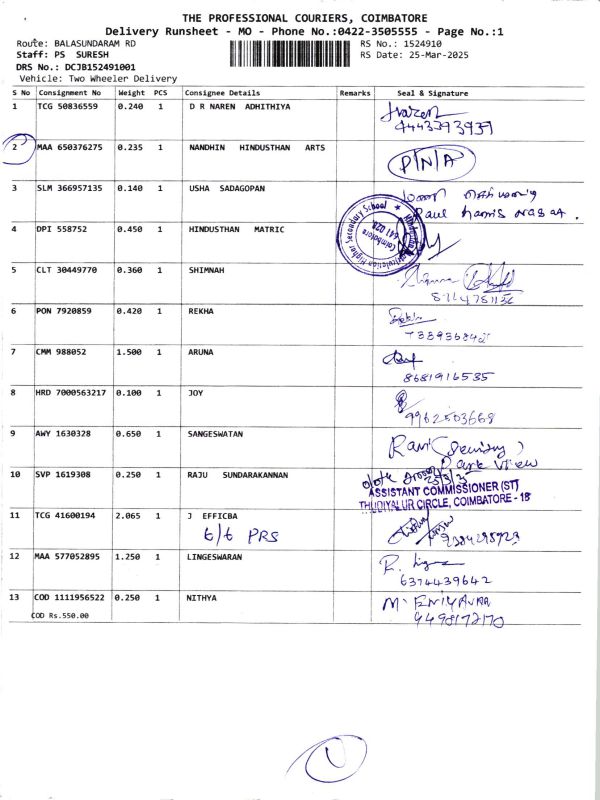 THE PROFESSIONAL COURIERS, COIMBATORE
Delivery Runsheet - MO - Phone No.:0422-3505555 - Page No.:1
Route: BALASUNDARAM RD RS No.: 1524910
Staff: PS SURESH RS Date: 25-Mar-2025
DRS No.: DCJB152491001
Vehicle: Two Wheeler Delivery
S No Consignment No Weight PCS Consignee Details Remarks Seal & Signature
1 TCG 50836559 0.240 1 D R NAREN ADHITHIYA Naren
9443793939
2 MAA 650376275 0.235 1 NANDHIN HINDUSTHAN ARTS P/N/A
3 SLM 366957135 0.140 1 USHA SADAGOPAN
Paul
4 DPI 558752 0.450 1 HINDUSTHAN MATRIC
Higher Secondary School
Coimbatore
641 028
5 CLT 30449770 0.360 1 SHIMNAH
6 PON 7920859 0.420 1 REKHA
7 CMM 988052 1.500 1 ARUNA
8681916535
8 HRD 7000563217 0.100 1 JOY
9962503668
9 AWY 1630328 0.650 1 SANGESWATAN Ravi
Park View
10 SVP 1619308 0.250 1 RAJU SUNDARAKANNAN
ASSISTANT COMMISSIONER (ST)
THUDIYALUR CIRCLE, COIMBATORE - 18
11 TCG 41600194 2.065 1 J EFFICBA
6/6 PRS
12 MAA 577052895 1.250 1 LINGESWARAN R.
6374439642
13 COD 1111956522 0.250 1 NITHYA M.
COD Rs.550.00